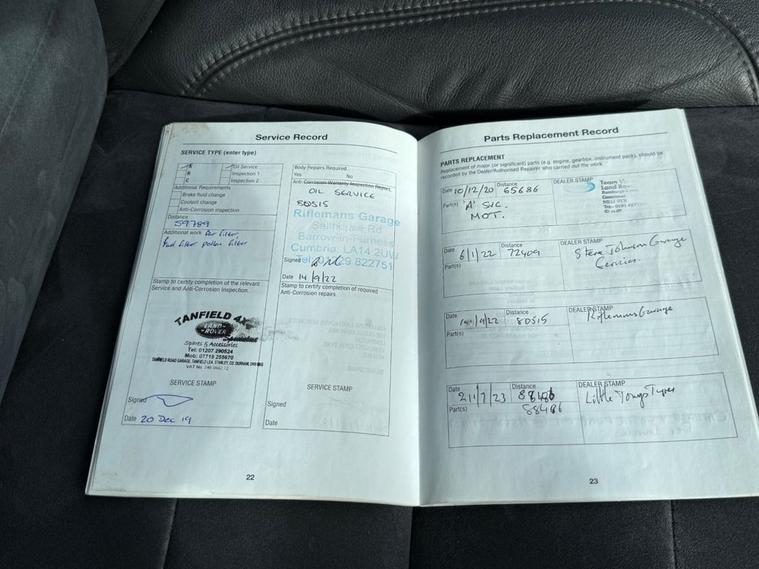 Service Record
SERVICE TYPE (enter type)
A
Oil Service
B
Inspection 1
C
Inspection 2
Additional Requirements
Brake fluid change
Coolant change
Anti-Corrosion inspection
Distance
59789
Additional work Air filter,
fuel filter pollen filter
Stamp to certify completion of the relevant
Service and Anti-Corrosion Inspection.
TANFIELD 4X
LAND ROVER
Specialists
Spares & Accessories
Tel: 01207 290524
Mob: 07719 255670
SERVICE STAMP
Signed
Date 20 Dec 19
Body Repairs Required
Yes No
Anti-Corrosion Warranty Inspection Report
OIL SERVICE
80515
Riflemans Garage
Rd
Barrow-in-Furness
Cumbria, LA14 2UW
Tel: 01229 822751
Signed
Date 14/9/22
Stamp to certify completion of required
Anti-Corrosion repairs
SERVICE STAMP
Signed
Date
22
Parts Replacement Record
PARTS REPLACEMENT
Replacement of major (or significant) parts (e.g. engine, gearbox, instrument pack), should be
recorded by the Dealer/Authorised Repairer who carried out the work.
Date 10/12/20
Distance 65686
DEALER STAMP
Part(s) 'A' SIC.
MOT.
Date 6/1/22
Distance 72409
DEALER STAMP
Steve Johnson Garage
Part(s)
Date 14/9/22
Distance 80515
DEALER STAMP
Riflemans Garage
Part(s)
Date 21/7/23
Distance
88486
DEALER STAMP
Little Tongs Tyres
Part(s)
23